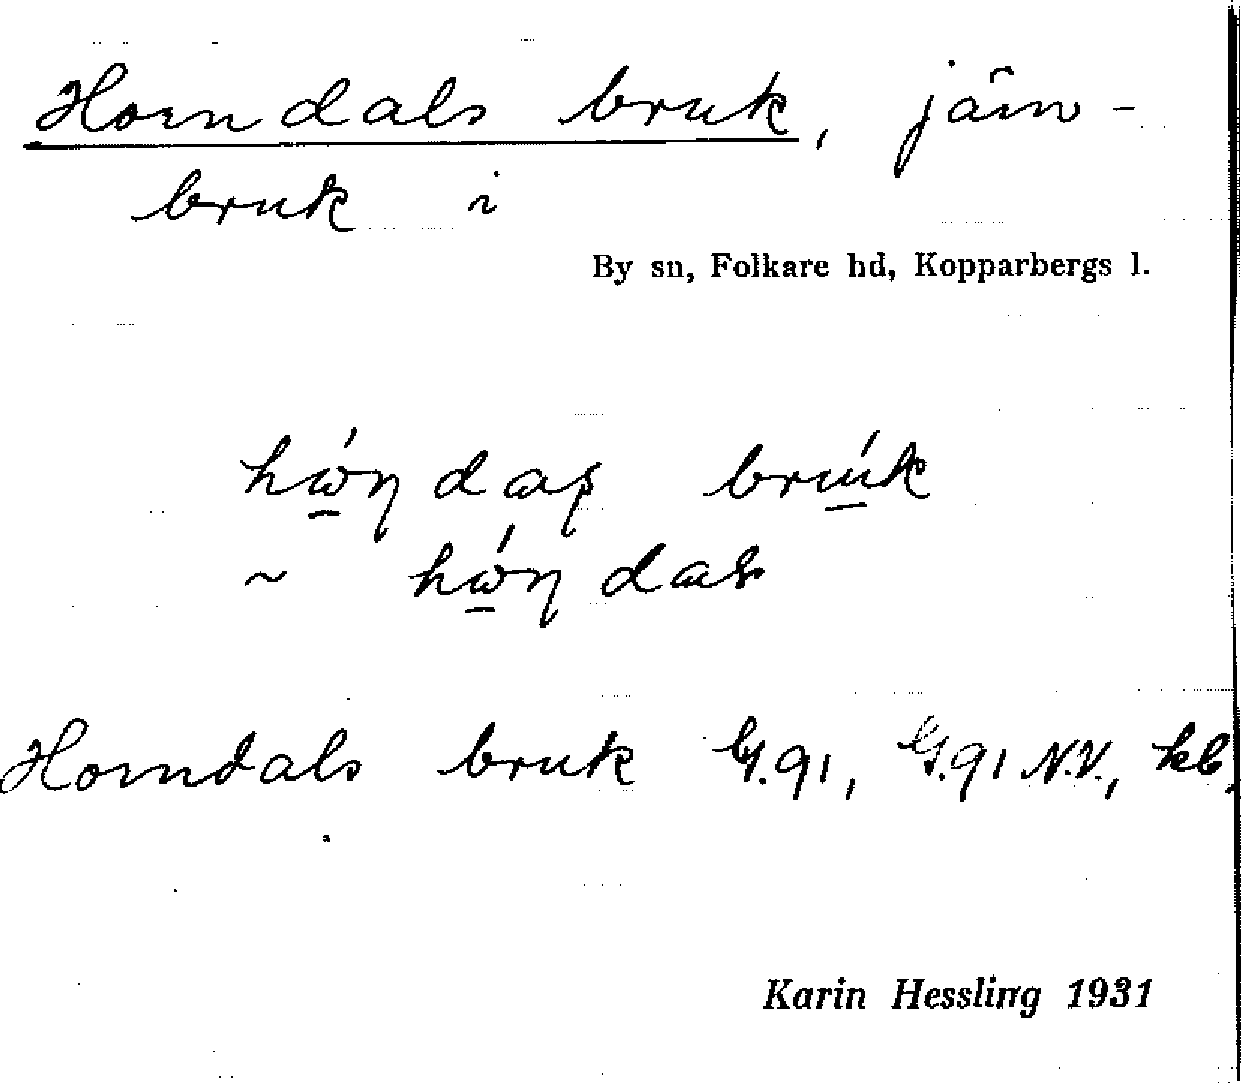 Horndals bruk, järn-
bruk i
By sn, Folkare hd, Kopparbergs l.
Horndals bruk G.91, G.91 N.V., kb.
Karin Hessling 1931